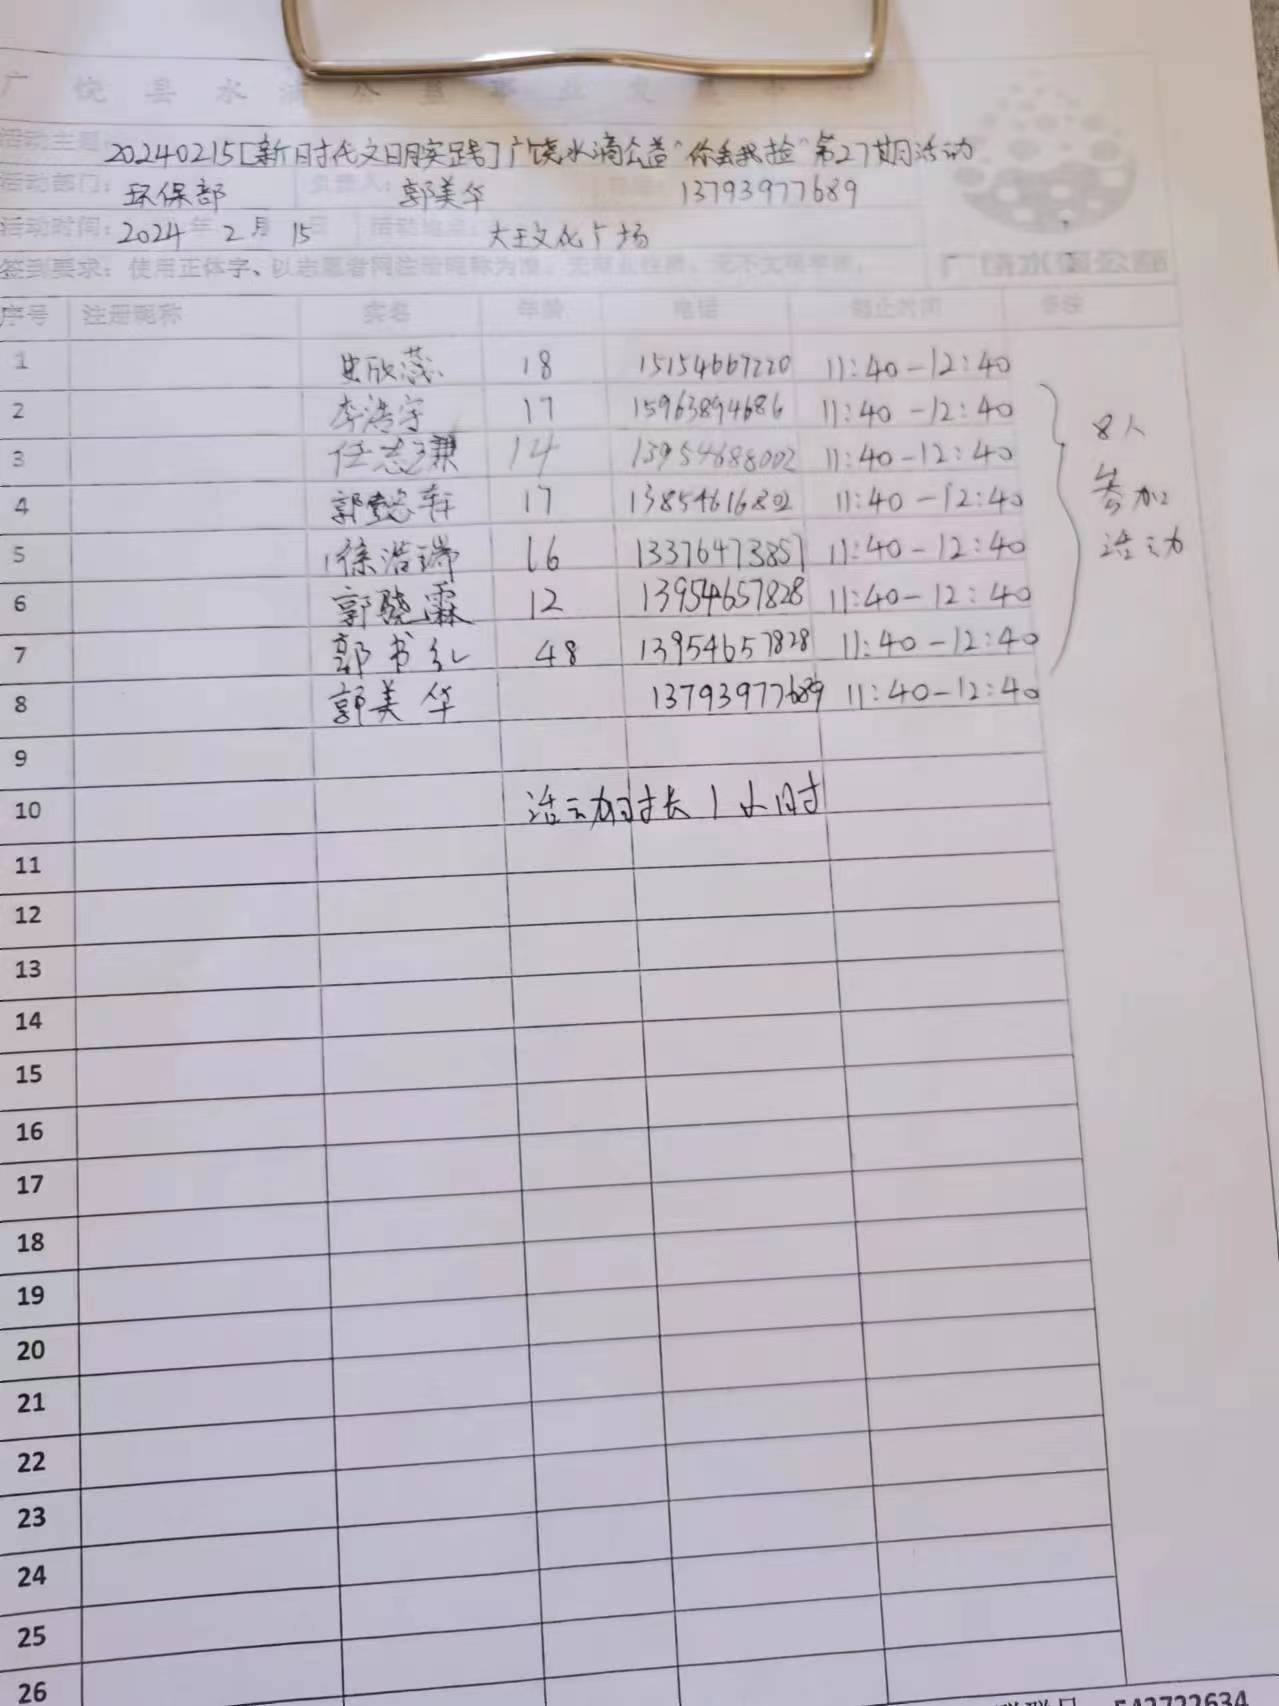 广饶县水滴公益事业发展中心
活动主题: 20240215[新时代文明实践]广饶水滴公益"你丢我捡"第27期活动
活动部门: 环保部 负责人: 郭美华 13793977689
活动时间: 2024年 2月 15日 活动地点: 大王文化广场
签到要求: 使用正体字、以志愿者网注册昵称为准,
序号 注册昵称 实名 年龄 电话 起止时间 备注
1 史欣蕊 18 15154667220 11:40-12:40
2 李浩宇 17 15963894686 11:40-12:40
3 任志谦 14 13954688002 11:40-12:40
4 郭懿轩 17 13854616802 11:40-12:40
5 徐浩瑞 16 13376473857 11:40-12:40
6 郭晓霖 12 13954657828 11:40-12:40
7 郭书红 48 13954657828 11:40-12:40
8 郭美华 13793977689 11:40-12:40
8人
参加
活动
9
10 活动时长1小时
11
12
13
14
15
16
17
18
19
20
21
22
23
24
25
26